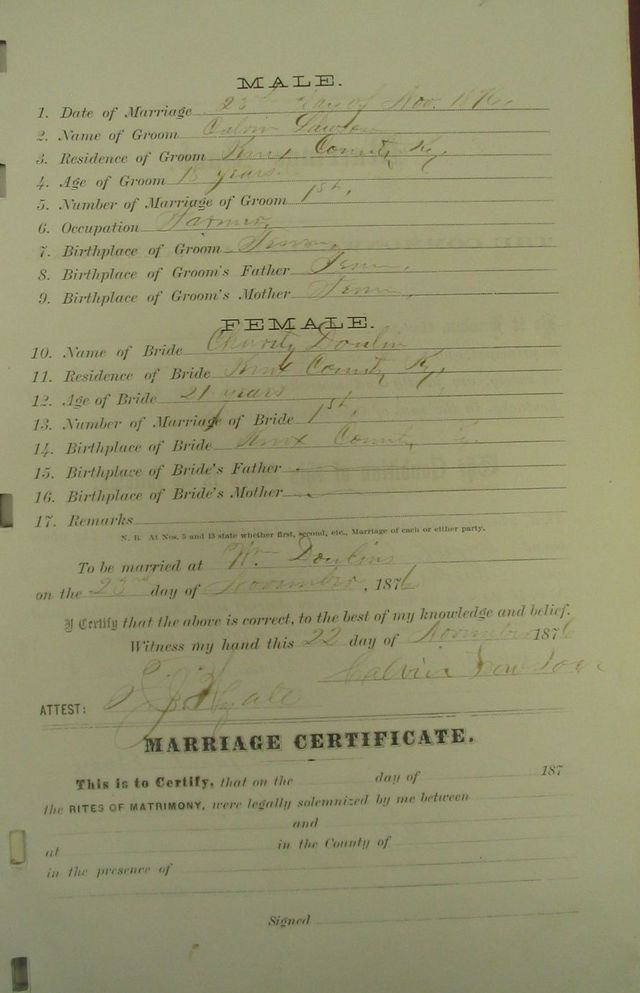 MALE.
1. Date of Marriage 23rd day of Nov. 1876.
2. Name of Groom Calvin Lawson
3. Residence of Groom Knox County Ky.
4. Age of Groom 18 years
5. Number of Marriage of Groom 1st,
6. Occupation Farmer,
7. Birthplace of Groom Tenn.
8. Birthplace of Groom's Father Tenn.
9. Birthplace of Groom's Mother Tenn.
FEMALE.
10. Name of Bride Charity Doulin
11. Residence of Bride Knox County Ky.
12. Age of Bride 21 years
13. Number of Marriage of Bride 1st,
14. Birthplace of Bride Knox County Ky.
15. Birthplace of Bride's Father
16. Birthplace of Bride's Mother
17. Remarks
N. B. At Nos. 5 and 13 state whether first, second, etc., Marriage of each or either party.
To be married at Wm Doulins
on the 23rd day of November, 1876
I Certify that the above is correct, to the best of my knowledge and belief.
Witness my hand this 22 day of November 1876
Calvin Lawson
ATTEST:
MARRIAGE CERTIFICATE.
This is to Certify, that on the day of 187
the RITES OF MATRIMONY, were legally solemnized by me between
and
at in the County of
in the presence of
Signed